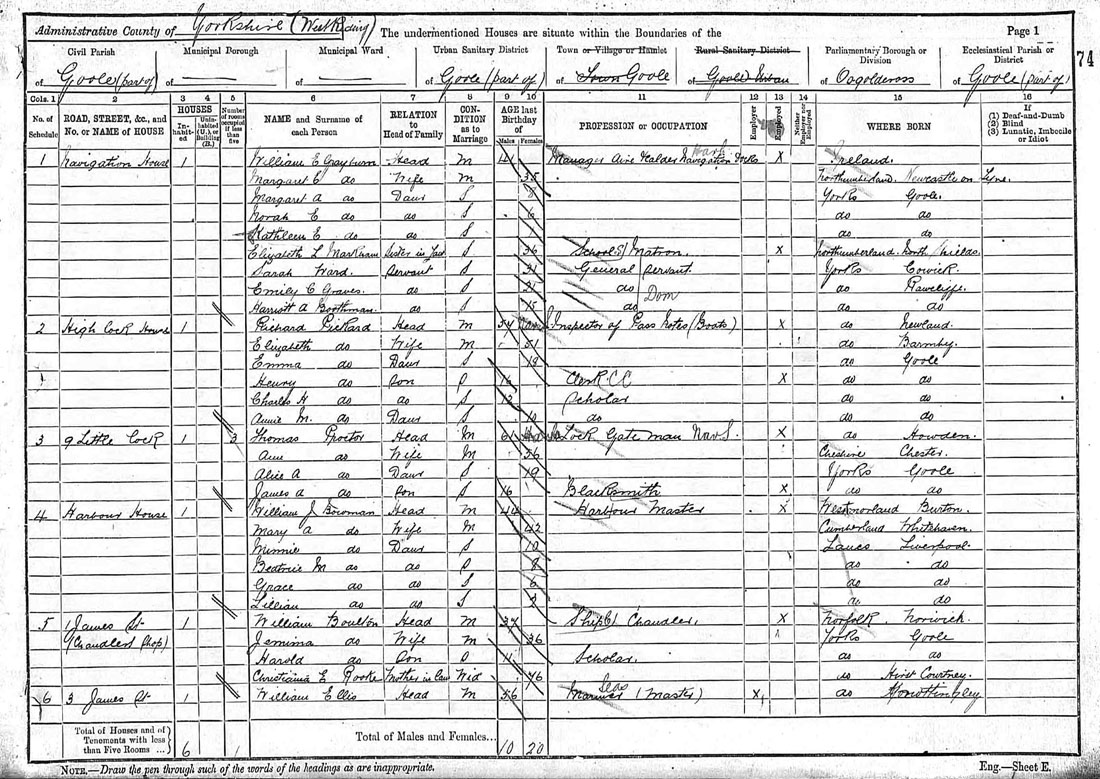 Administrative County of Yorkshire (West Riding) The undermentioned Houses are situate within the Boundaries of the Page 1
74
Civil Parish Municipal Borough Municipal Ward Urban Sanitary District Town or Village or Hamlet Rural Sanitary District Parliamentary Borough or Division Ecclesiastical Parish or District
of Goole (part of) of of of Goole (part of) of Town Goole of Goole Urban of Osgoldcross of Goole (part of)
Cols. 1 2 3 4 5 6 7 8 9 10 11 12 13 14 15 16
No. of Schedule ROAD, STREET, &c., and No. or NAME of HOUSE HOUSES Inhabited Uninhabited (U.), or Building (B.) Number of rooms occupied if less than five NAME and Surname of each Person RELATION to Head of Family CONDITION as to Marriage AGE last Birthday of Males Females PROFESSION or OCCUPATION Employer Employed Neither Employer nor Employed WHERE BORN If (1) Deaf-and-Dumb (2) Blind (3) Lunatic, Imbecile or Idiot
1 Navigation House 1 William E Grayburn Head M 41 Manager Aire & Calder Navigation Docks X Ireland
Margaret E do Wife M 35 Northumberland Newcastle on Tyne
Margaret A do Daur S 8 Yorks Goole
Norah E do do S 6 do do
Kathleen E do do S do do
Elizabeth L Markham Sister in law S 36 School Matron X Northumberland North Shields
Sarah Ward Servant S 31 General Servant Yorks Cowick
Emily C Graves do S 21 do Dom do Rawcliffe
Harriott A Boothman do S 15 do do do
2 High Lock House 1 Richard Pickard Head M 54 Inspector of Pass Notes (Boats) X do Newland
Elizabeth do Wife M 51 do Barmby
Emma do Daur S 19 do Goole
Henry do Son S 16 Clerk CC X do do
Charles H do do S 12 Scholar do do
Annie M. do Daur S 10 do do do
3 9 Little Lock 1 3 Thomas Proctor Head M 61 Lock Gateman Nav S. X do Howden
Ann do Wife M 56 Cheshire Chester
Alice A do Daur S 19 Yorks Goole
James A do Son S 16 Blacksmith X do do
4 Harbour House 1 William J Bowman Head M 44 Harbour Master X Westmorland Burton
Mary A do Wife M 42 Cumberland Whitehaven
Minnie do Daur S 10 Lancs Liverpool
Beatrice M do do S 8 do do
Grace do do S 6 do do
Lillian do do S 2 do do
5 1 James St 1 William Boulton Head M 37 Ship Chandler X Norfolk Norwich
(Chandlers Shop) Jemima do Wife M 36 Yorks Goole
Harold do Son S 11 Scholar do do
Christiana E Rooke Mother in law Wid 76 do Hirst Courtney
6 3 James St 1 William Ellis Head M 56 Mariner Seas (Master) X do Knottingley
Total of Houses and of Tenements with less than Five Rooms ... 6 1 Total of Males and Females... 10 20
NOTE.—Draw the pen through such of the words of the headings as are inappropriate. Eng.—Sheet E.